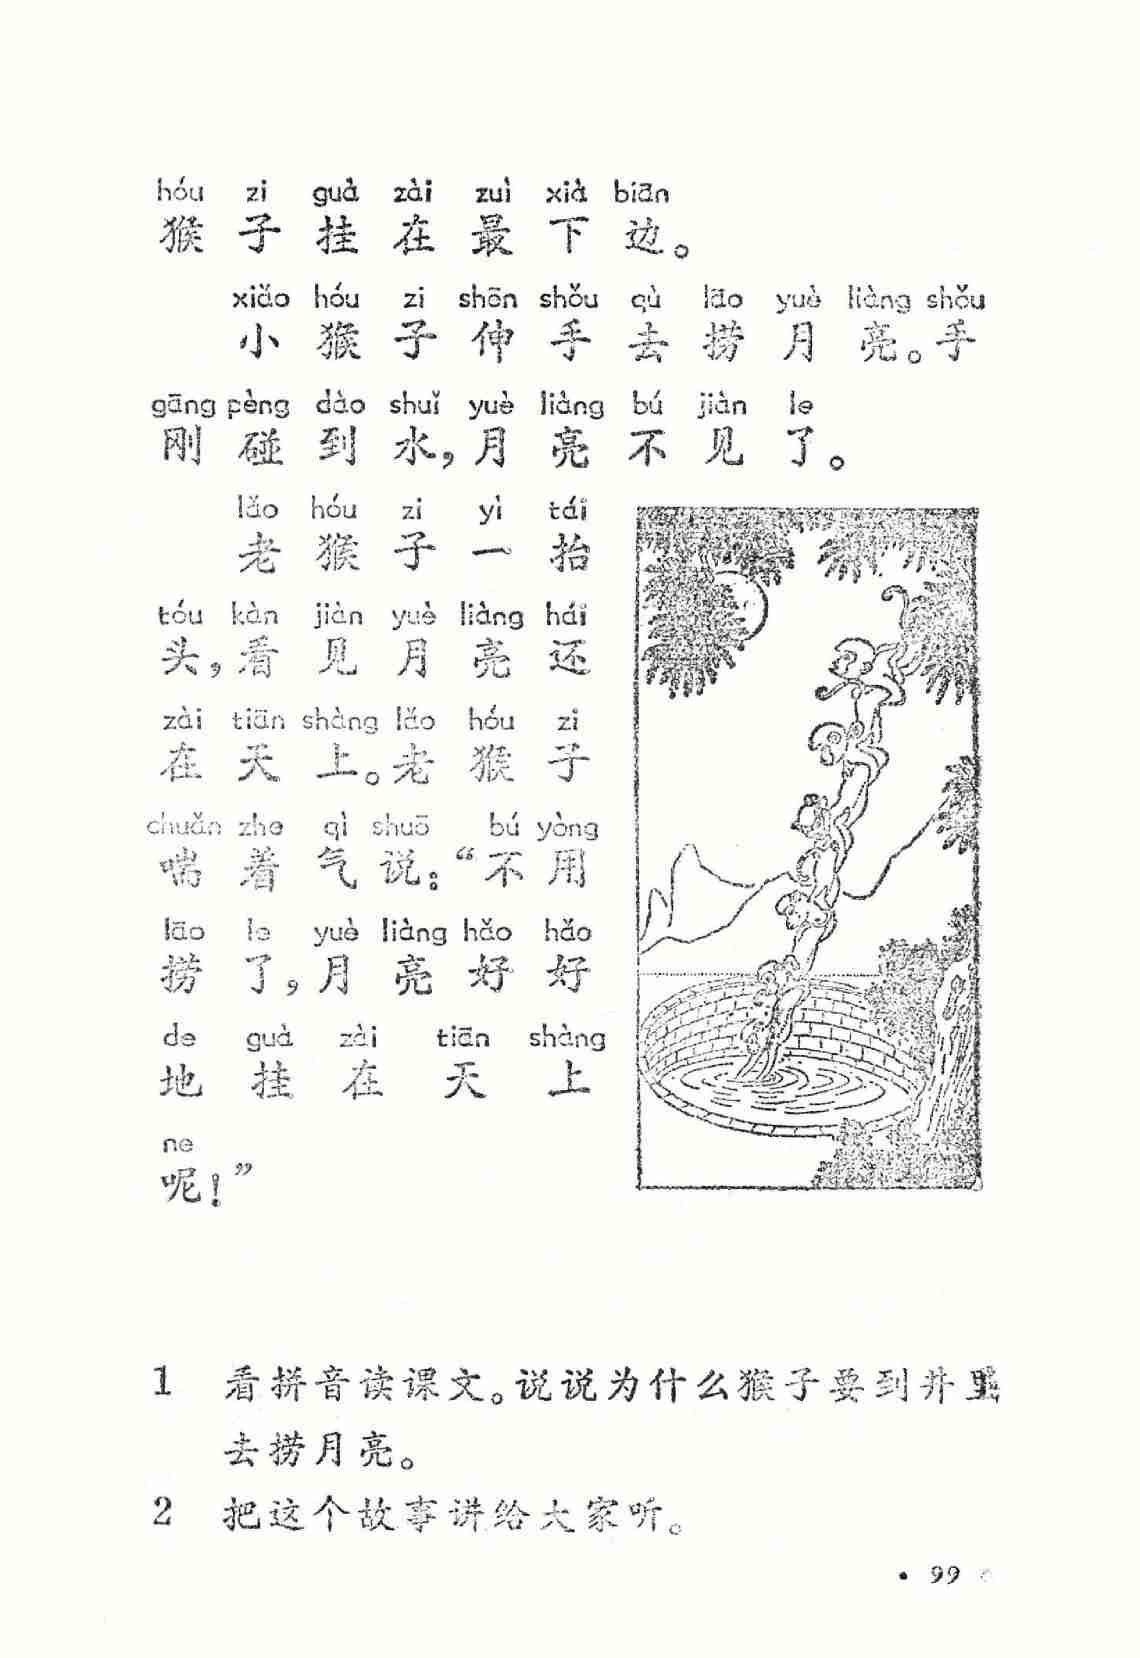 hóu zi guà zài zuì xià biān
猴子挂在最下边。
xiǎo hóu zi shēn shǒu qù lāo yuè liàng shǒu
小猴子伸手去捞月亮。手
gāng pèng dào shuǐ yuè liàng bú jiàn le
刚碰到水，月亮不见了。
lǎo hóu zi yì tái
老猴子一抬
tóu kàn jiàn yuè liàng hái
头，看见月亮还
zài tiān shàng lǎo hóu zi
在天上。老猴子
chuǎn zhe qì shuō bú yòng
喘着气说：“不用
lāo le yuè liàng hǎo hǎo
捞了，月亮好好
de guà zài tiān shàng
地挂在天上
ne
呢！”
1 看拼音读课文。说说为什么猴子要到井里
去捞月亮。
2 把这个故事讲给大家听。
· 99